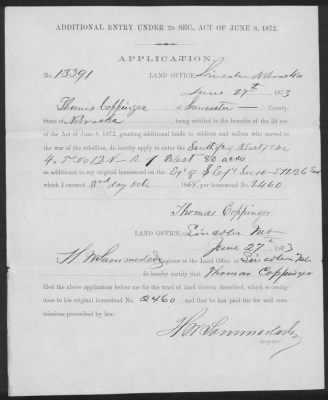 ADDITIONAL ENTRY UNDER 2D SEC. ACT OF JUNE 8, 1872.
APPLICATION
No. 13391 LAND OFFICE, Lincoln Nebraska
June 27th 1873
I Thomas Coppinger of Lancaster County,
State of Nebraska, being entitled to the benefits of the 2d sec.
of the Act of June 8, 1872, granting additional lands to soldiers and sailors who served in
the war of the rebellion, do hereby apply to enter the South ½ of West
4. 12 N R 1 West 80 acres
as additional to my original homestead on the E½ of S E ¼ Sec 10 T N 26 East
which I entered 3rd day Oct. 1865, per homestead No. 2460.
Thomas Coppinger
LAND OFFICE, Lincoln Neb
June 27 1873
I, Register of the Land Office at Lincoln Neb
do hereby certify that Thomas Coppinger
filed the above application before me for the tract of land therein described, which is contig-
uous to his original homestead No. 2460, and that he has paid the fee and com-
missions prescribed by law.
Register